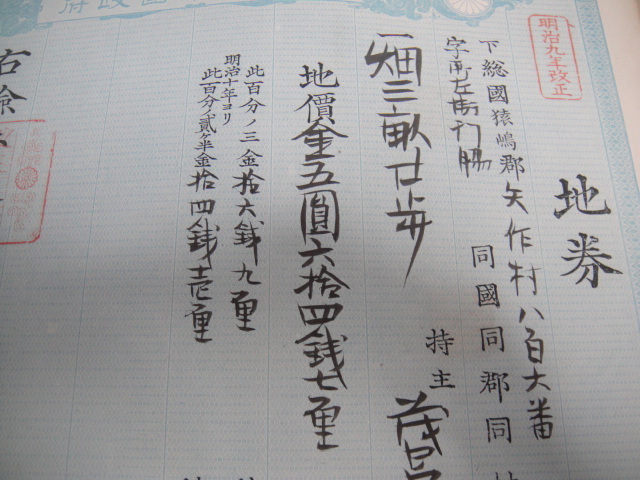 府政
明治九年改正
地券
下総國猿嶋郡矢作村八百六番
字
同國同郡同
一畑三畝廿歩
持主
地價金五圓六拾四銭七厘
此百分ノ三金拾六銭九厘
明治十年ヨリ
此百分ノ貳ヶ半金拾四銭壱厘
右検